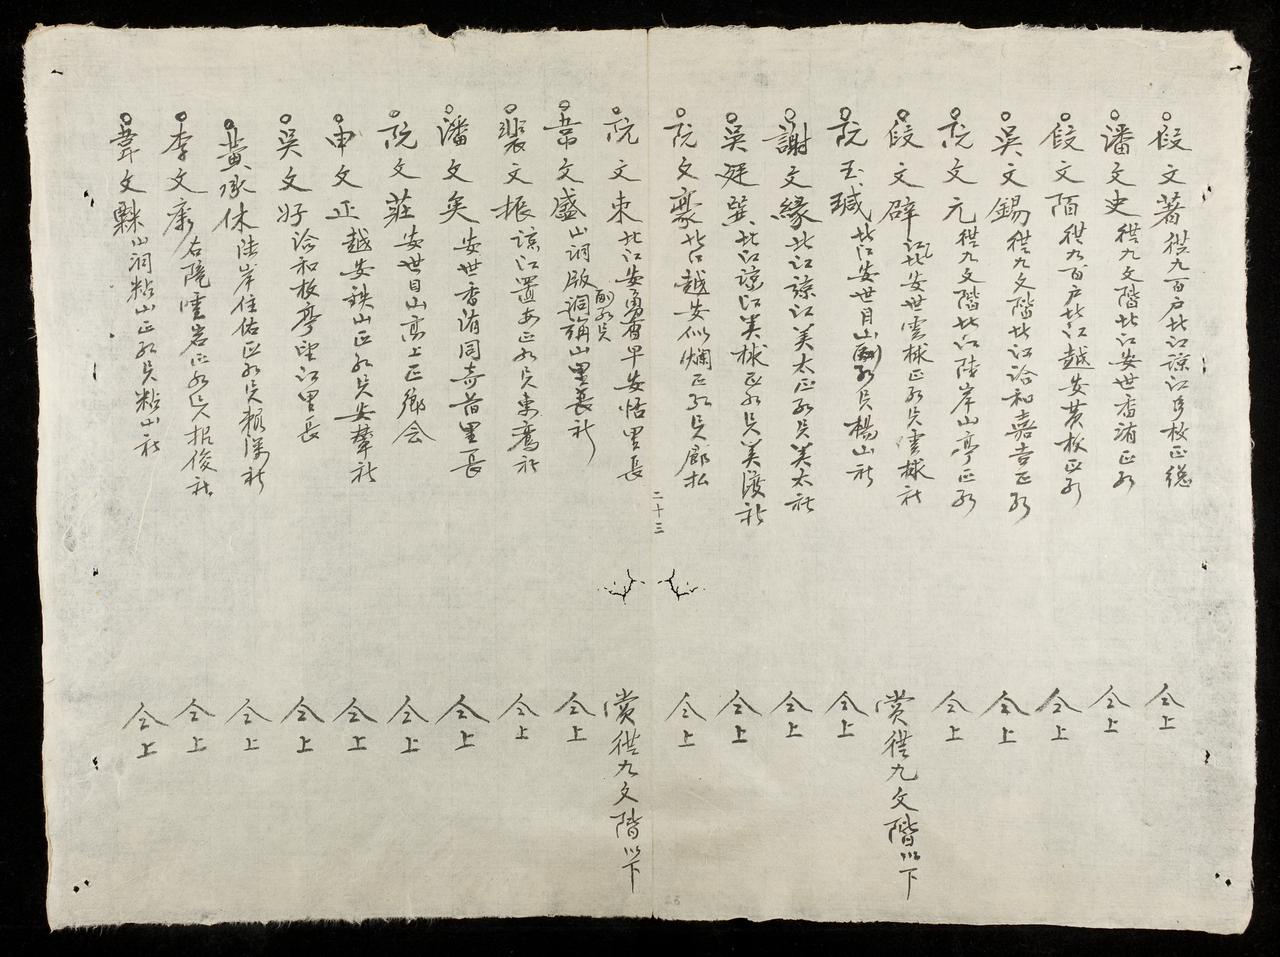 文著從九百戶北江諒江[?]枚正総
仝上
潘文史從九文階北江安世香[?]正
仝上
文陌從九百戶北江越安黄枚正
仝上
吳文錫從九文階北江洽和嘉吉正
仝上
阮文元從九文階北江陸岸山亭正
仝上
文辟北江安世雲梂正員雲梂社
賞從九文階以下
阮玉瑊北江安世目山副員楊山社
仝上
謝文緣北江諒江美太正員美太社
仝上
吳廷巽北江諒江美梂正員美渡社
仝上
阮文豪北江越安仙爛正員
仝上
二十三
阮文東北江安勇香早安恬里長
賞從九文階以下
韋文盛山洞版洞副員山里長社
仝上
裴文振諒江置安正員社
仝上
潘文矣安世香同奇里長
仝上
阮文莊安世目山亭上正鄉会
仝上
申文正越安鉄山正員安輦社
仝上
吳文好洽和枚亭望江里長
仝上
黃承休陸岸住佑正員社
仝上
李文康右隴岩正員招俊社
仝上
韋文縣山洞粘山正員粘山社
仝上